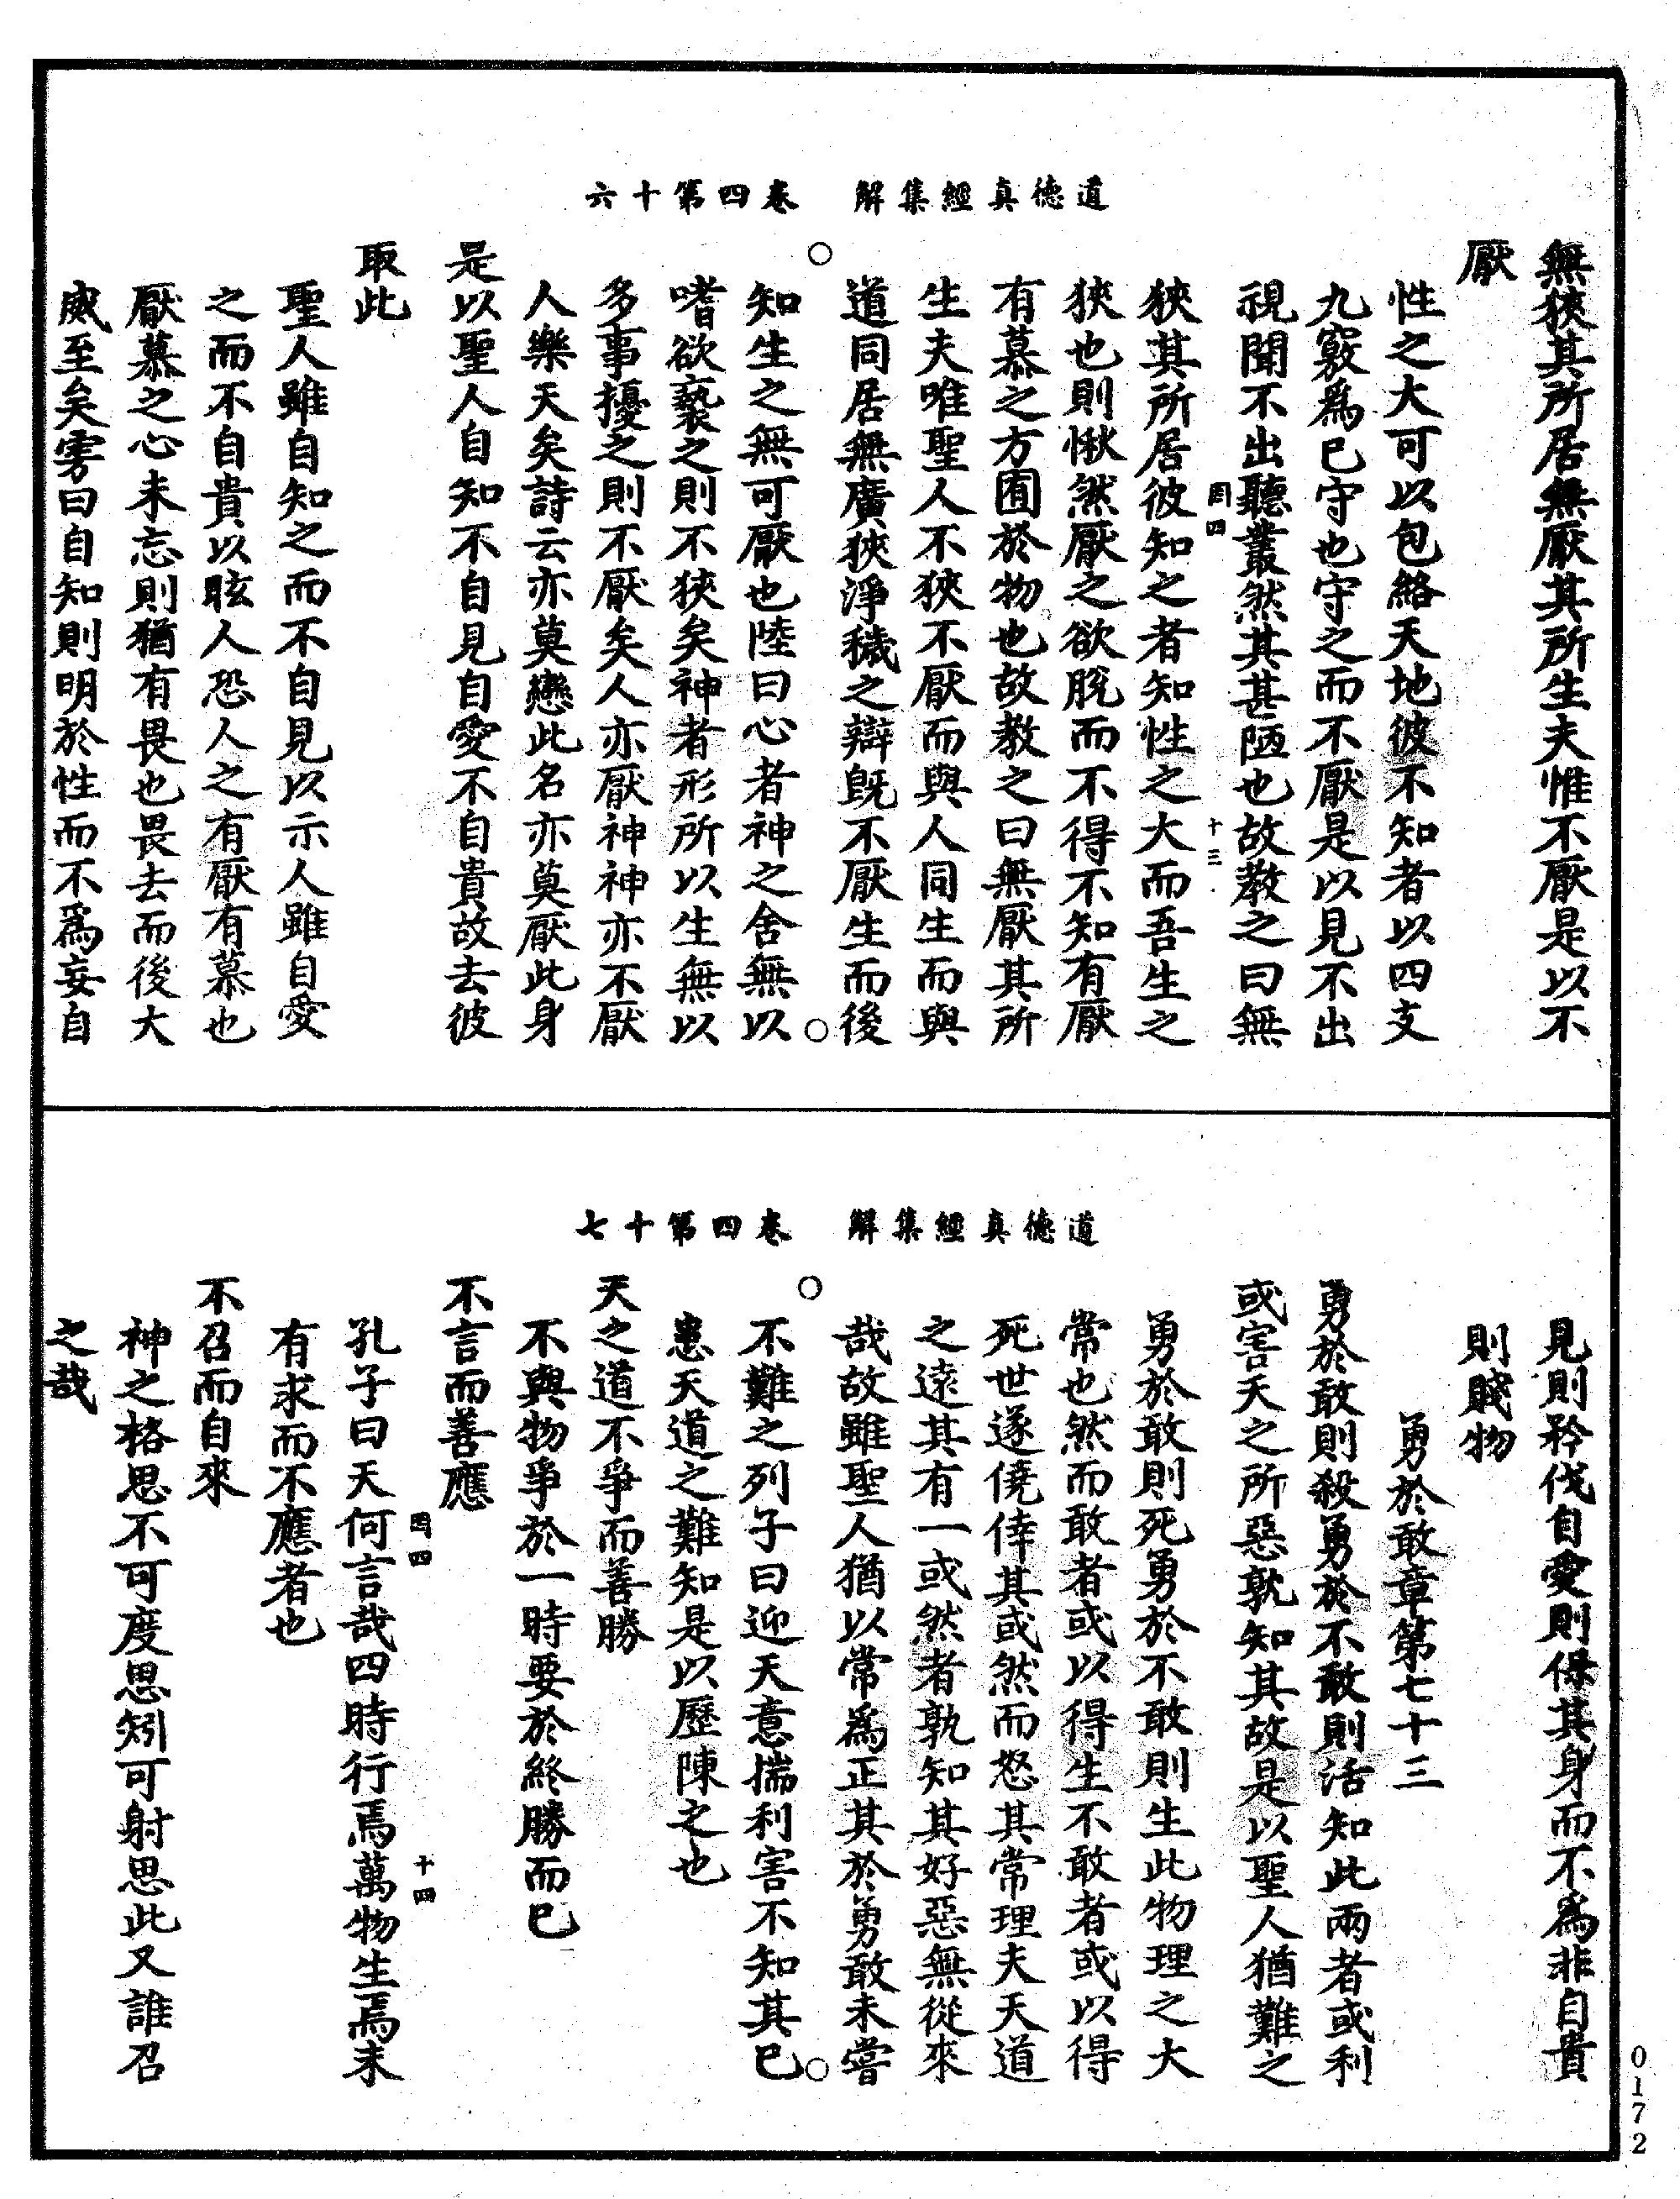 道德真經集解　卷四第十六
無狹其所居無厭其所生夫惟不厭是以不
厭
性之大可以包絡天地彼不知者以四支
九竅爲已守也守之而不厭是以見不出
視聞不出聽叢然其甚陋也故教之曰無
罔四　十三
狹其所居彼知之者知性之大而吾生之
狹也則愀然厭之欲脫而不得不知有厭
有慕之方囿於物也故教之曰無厭其所
生夫唯聖人不狹不厭而與人同生而與
道同居無廣狹淨穢之辯旣不厭生而後
知生之無可厭也陸曰心者神之舍無以
嗜欲褻之則不狹矣神者形所以生無以
多事擾之則不厭矣人亦厭神神亦不厭
人樂天矣詩云亦莫戀此名亦莫厭此身
是以聖人自知不自見自愛不自貴故去彼
取此
聖人雖自知之而不自見以示人雖自愛
之而不自貴以眩人恐人之有厭有慕也
厭慕之心未忘則猶有畏也畏去而後大
威至矣雱曰自知則明於性而不爲妄自
道德真經集解　卷四第十七
見則矜伐自愛則保其身而不爲非自貴
則賤物
勇於敢章第七十三
勇於敢則殺勇於不敢則活知此兩者或利
或害天之所惡孰知其故是以聖人猶難之
勇於敢則死勇於不敢則生此物理之大
常也然而敢者或以得生不敢者或以得
死世遂僥倖其或然而怒其常理夫天道
之遠其有一或然者孰知其好惡無從來
哉故雖聖人猶以常爲正其於勇敢未嘗
不難之列子曰迎天意揣利害不知其已
患天道之難知是以歷陳之也
天之道不爭而善勝
不與物爭於一時要於終勝而已
不言而善應
罔四　十四
孔子曰天何言哉四時行焉萬物生焉未
有求而不應者也
不召而自來
神之格思不可度思矧可射思此又誰召
之哉
0172